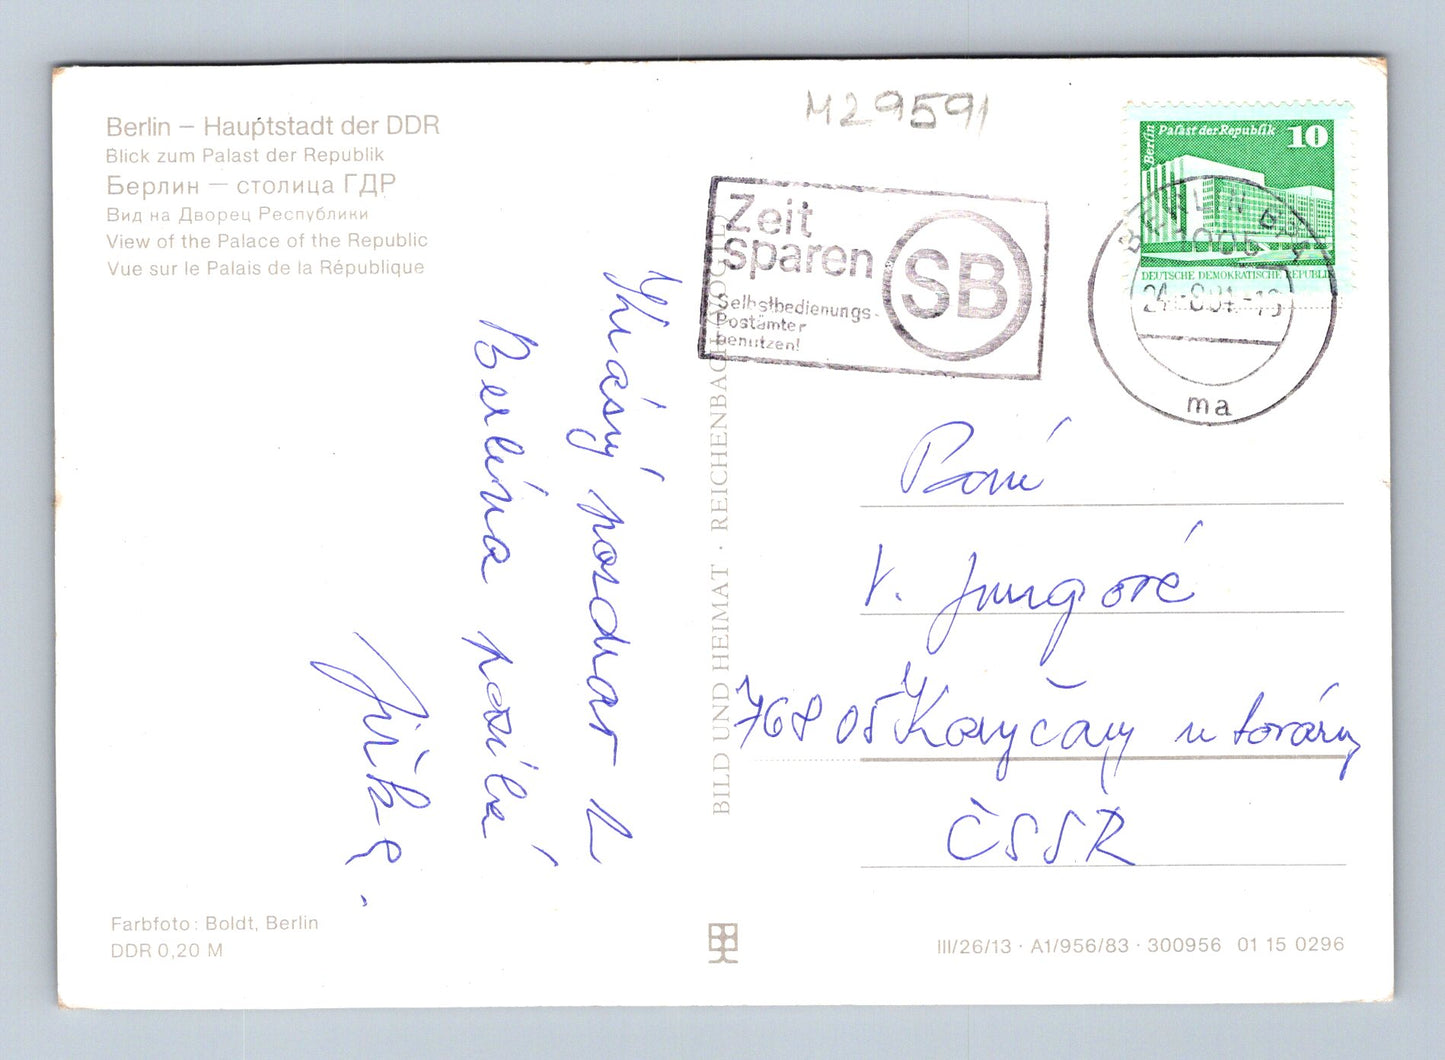 Berlin – Hauptstadt der DDR
Blick zum Palast der Republik
Берлин — столица ГДР
Вид на Дворец Республики
View of the Palace of the Republic
Vue sur le Palais de la République
Krásný pozdrav z
Berlína posílá
Jiřka.
Farbfoto: Boldt, Berlin
DDR 0,20 M
BILD UND HEIMAT · REICHENBACH
M29591
Zeit
sparen
SB
Selbstbedienungs-
Postämter
benutzen!
Berlin Palast der Republik 10
DEUTSCHE DEMOKRATISCHE REPUBLIK
BERLIN
ma
Paní
V. Jungové
768 05 Koryčany u továrny
ČSSR
III/26/13 · A1/956/83 · 300956 01 15 0296